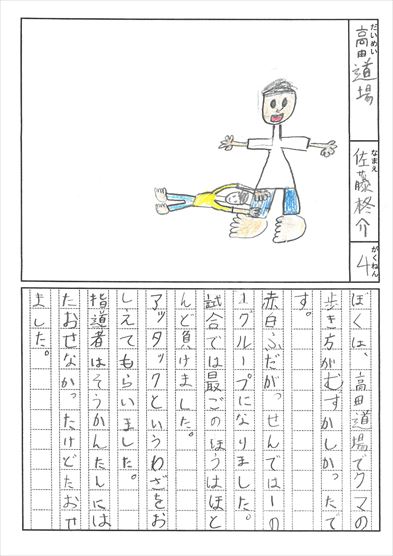 だいめい
高田道場
なまえ
佐藤柊介
がくねん
4
ぼくは、高田道場でクマの
歩き方がむずかしかったで
す。
赤白ふだがっせんでは一の
一グループになりました。
試合では最ごのほうはほと
んど負けました。
アッタックというわざをお
しえてもらいました。
指導者はそうかんたんには
たおせなかったけどたおせ
ました。